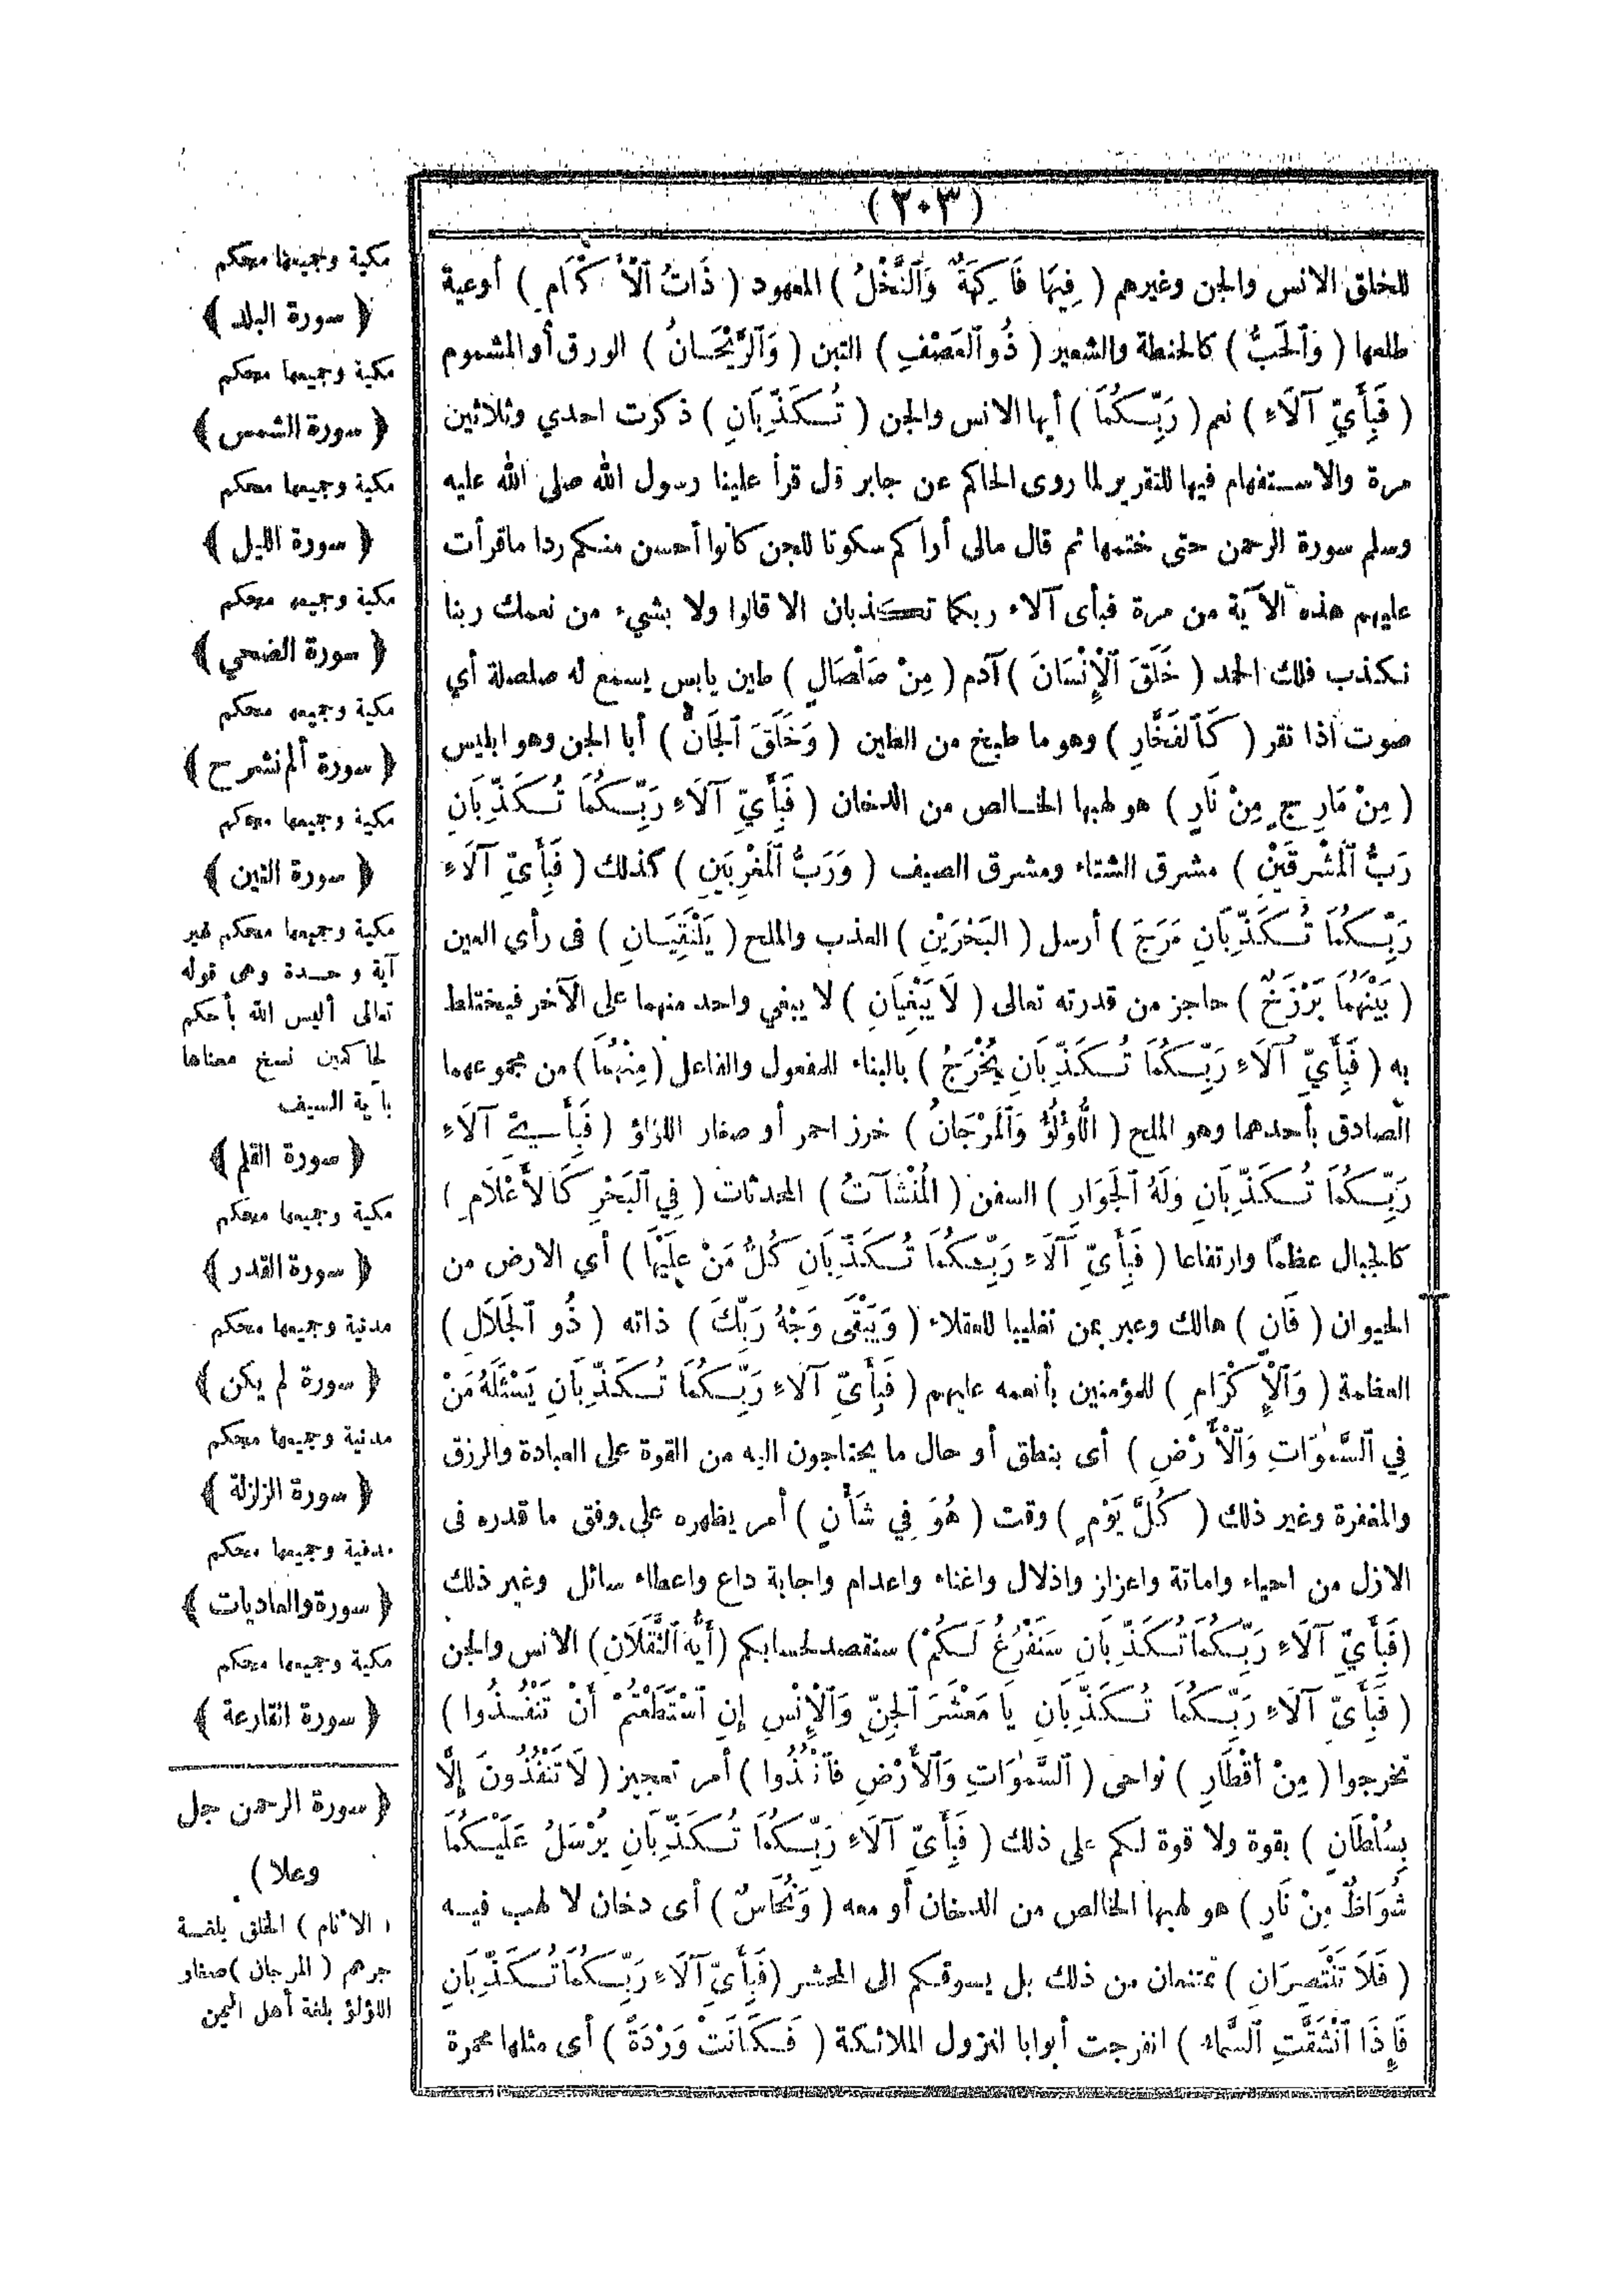 (٢٠٣)
للخلق الانس والجن وغيرهم ( فِيهَا فَاكِهَةٌ وَٱلنَّخْلُ ) المعهود ( ذَاتُ ٱلْأَكْمَامِ ) أوعية
طلعها ( وَٱلْحَبُّ ) كالحنطة والشعير ( ذُو ٱلْعَصْفِ ) التبن ( وَٱلرَّيْحَانُ ) الورق أو المشموم
( فَبِأَيِّ آلَاءِ ) نعم ( رَبِّكُمَا ) أيها الانس والجن ( تُكَذِّبَانِ ) ذكرت احدي وثلاثين
مرة والاستفهام فيها للتقرير لما روى الحاكم عن جابر قل قرأ علينا رسول الله صلى الله عليه
وسلم سورة الرحمن حتى ختمها ثم قال مالى أراكم سكوتا للجن كانوا أحسن منكم ردا ماقرأت
عليهم هذه الآية من مرة فبأى آلاء ربكما تكذبان الا قالوا ولا بشيء من نعمك ربنا
نكذب فلك الحمد ( خَلَقَ ٱلْإِنْسَانَ ) آدم ( مِنْ صَلْصَالٍ ) طين يابس يسمع له صلصلة أي
صوت اذا نقر ( كَٱلْفَخَّارِ ) وهو ما طبخ من الطين ( وَخَلَقَ ٱلْجَانَّ ) أبا الجن وهو ابليس
( مِنْ مَارِجٍ مِنْ نَارٍ ) هو لهبها الخالص من الدخان ( فَبِأَيِّ آلَاءِ رَبِّكُمَا تُكَذِّبَانِ
رَبُّ ٱلْمَشْرِقَيْنِ ) مشرق الشتاء ومشرق الصيف ( وَرَبُّ ٱلْمَغْرِبَيْنِ ) كذلك ( فَبِأَيِّ آلَاءِ
رَبِّكُمَا تُكَذِّبَانِ مَرَجَ ) أرسل ( ٱلْبَحْرَيْنِ ) العذب والملح ( يَلْتَقِيَانِ ) فى رأي العين
( بَيْنَهُمَا بَرْزَخٌ ) حاجز من قدرته تعالى ( لَا يَبْغِيَانِ ) لا يبغي واحد منهما على الآخر فيختلط
به ( فَبِأَيِّ آلَاءِ رَبِّكُمَا تُكَذِّبَانِ يُخْرَجُ ) بالبناء للمفعول والفاعل ( مِنْهُمَا ) من مجموعهما
الصادق بأحدهما وهو الملح ( ٱللُّؤْلُؤُ وَٱلْمَرْجَانُ ) خرز احمر أو صغار اللؤلؤ ( فَبِأَيِّ آلَاءِ
رَبِّكُمَا تُكَذِّبَانِ وَلَهُ ٱلْجَوَارِ ) السفن ( ٱلْمُنْشَآتُ ) المحدثات ( فِي ٱلْبَحْرِ كَٱلْأَعْلَامِ )
كالجبال عظمًا وارتفاعا ( فَبِأَيِّ آلَاءِ رَبِّكُمَا تُكَذِّبَانِ كُلُّ مَنْ عَلَيْهَا ) أي الارض من
الحيوان ( فَانٍ ) هالك وعبر بمن تغليبا للعقلاء ( وَيَبْقَى وَجْهُ رَبِّكَ ) ذاته ( ذُو ٱلْجَلَالِ )
العظمة ( وَٱلْإِكْرَامِ ) للمؤمنين بأنعمه عليهم ( فَبِأَيِّ آلَاءِ رَبِّكُمَا تُكَذِّبَانِ يَسْئَلُهُ مَنْ
فِي ٱلسَّمٰوَاتِ وَٱلْأَرْضِ ) أى بنطق أو حال ما يحتاجون اليه من القوة على العبادة والرزق
والمغفرة وغير ذلك ( كُلَّ يَوْمٍ ) وقت ( هُوَ فِي شَأْنٍ ) أمر يظهره على وفق ما قدره فى
الازل من احياء واماتة واعزاز واذلال واغناء واعدام واجابة داع واعطاء سائل وغير ذلك
( فَبِأَيِّ آلَاءِ رَبِّكُمَا تُكَذِّبَانِ سَنَفْرُغُ لَكُمْ ) سنقصد لحسابكم ( أَيُّهَ ٱلثَّقَلَانِ ) الانس والجن
( فَبِأَيِّ آلَاءِ رَبِّكُمَا تُكَذِّبَانِ يَا مَعْشَرَ ٱلْجِنِّ وَٱلْإِنْسِ إِنِ ٱسْتَطَعْتُمْ أَنْ تَنْفُذُوا )
تخرجوا ( مِنْ أَقْطَارِ ) نواحى ( ٱلسَّمٰوَاتِ وَٱلْأَرْضِ فَٱنْفُذُوا ) أمر تعجيز ( لَا تَنْفُذُونَ إِلَّا
بِسُلْطَانٍ ) بقوة ولا قوة لكم على ذلك ( فَبِأَيِّ آلَاءِ رَبِّكُمَا تُكَذِّبَانِ يُرْسَلُ عَلَيْكُمَا
شُوَاظٌ مِنْ نَارٍ ) هو لهبها الخالص من الدخان أو معه ( وَنُحَاسٌ ) أى دخان لا لهب فيه
( فَلَا تَنْتَصِرَانِ ) تمتنعان من ذلك بل يسوقكم الى المحشر ( فَبِأَيِّ آلَاءِ رَبِّكُمَا تُكَذِّبَانِ
فَإِذَا ٱنْشَقَّتِ ٱلسَّمَاءُ ) انفرجت أبوابا لنزول الملائكة ( فَكَانَتْ وَرْدَةً ) أى مثلها محمرة
مكية وجميعها محكم
﴿ سورة البلد ﴾
مكية وجميعها محكم
﴿ سورة الشمس ﴾
مكية وجميعها محكم
﴿ سورة الليل ﴾
مكية وجميعه محكم
﴿ سورة الضحي ﴾
مكية وجميعه محكم
﴿ سورة ألم نشرح ﴾
مكية وجميعها محكم
﴿ سورة التين ﴾
مكية وجميعها محكم غير
آية وحدة وهى قوله
تعالى أليس الله بأحكم
لحاكمين نسخ معناها
بآية السيف
﴿ سورة القلم ﴾
مكية وجميعها محكم
﴿ سورة القدر ﴾
مدنية وجميعها محكم
﴿ سورة لم يكن ﴾
مدنية وجميعها محكم
﴿ سورة الزلزلة ﴾
مدنية وجميعها محكم
﴿ سورة والعاديات ﴾
مكية وجميعها محكم
﴿ سورة القارعة ﴾
﴿ سورة الرحمن جل
وعلا )
( الأنام ) الخلق بلغة
جرهم ( المرجان ) صغار
اللؤلؤ بلغة أهل اليمن